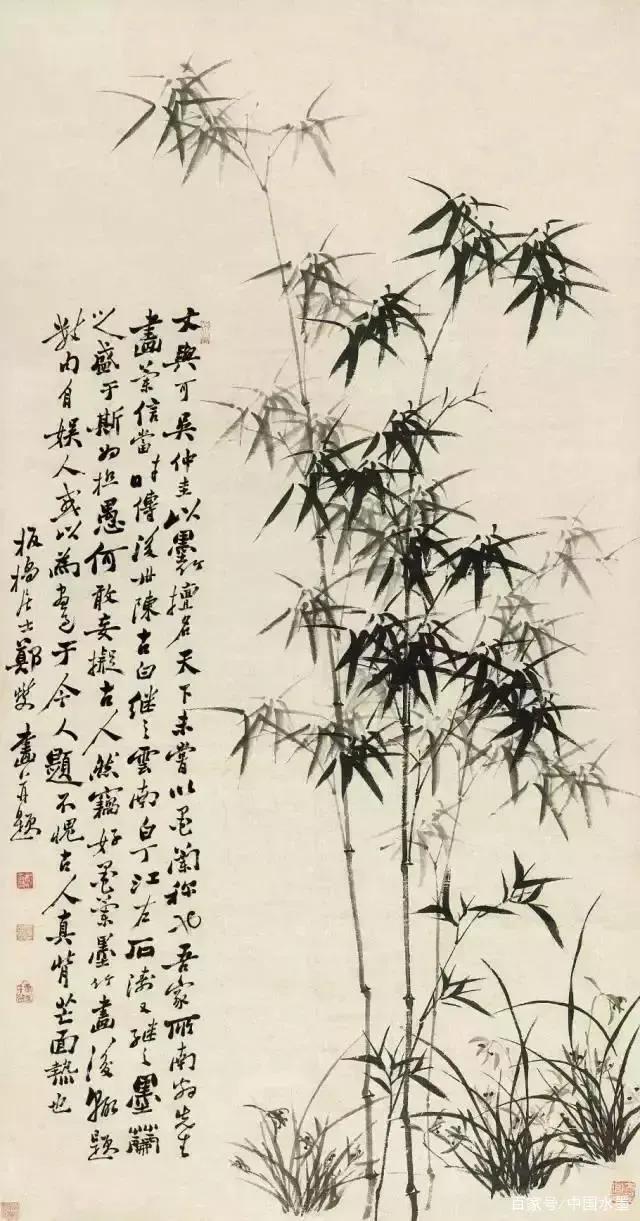 文與可吴仲圭以墨竹擅名天下未嘗以墨蘭称也吾家所南翁先生
畫蘭信當時傳後世陳古白继之雲南白丁江左石濤又继之墨蘭
之盛于斯为極愚何敢妄擬古人然竊好墨蘭墨竹畫後輒題
數自娱人或以為畫于今人題不愧古人真背芒面热也
板橋居士鄭燮畫并題
百家号/中国水墨